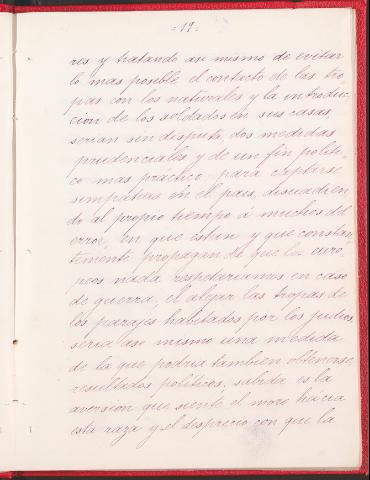 = 19 =
res y tratando asi mismo de evitar
lo mas posible el contacto de las tro-
pas con los naturales y la introduc-
cion de los soldados en sus casas,
serian sin disputa, dos medidas
prudenciales y de un fin politi-
co mas practico, para captarse
simpatias en el pais, disuadien
do al propio tiempo á muchos del
error, en que estan y que constan-
temente propagan de que los euro-
peos nada respetariamos en caso
de guerra, el alejar las tropas de
los parajes habitados por los judios
seria asi mismo una medida
de la que podria tambien obtenerse
resultados politicos, sabida es la
aversion que siente el moro hacia
esta raza y el desprecio con que la